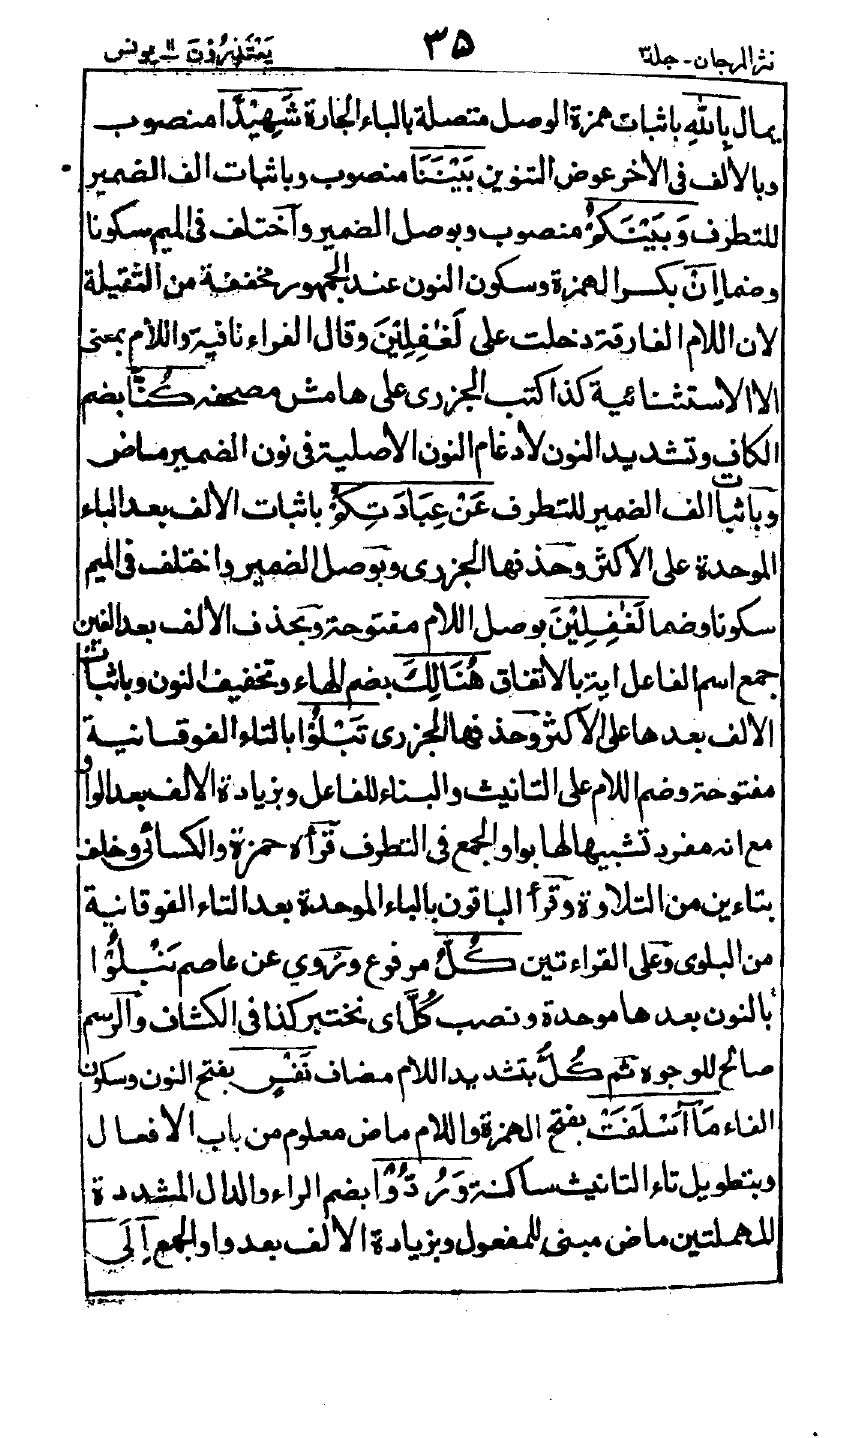 نثر المرجان - جلد ٣ ٣٥ يعتذرون ١١ يونس
يمال بِاللهِ باثبات همزة الوصل متصلة بالباء الجارة شَهِيْدًا منصوب
وبالالف فى الاخر عوض التنوين بَيْنَنَا منصوب وباثبات الف الضمير
للتطرف وَبَيْنَكُمْ منصوب وبوصل الضمير واختلف فى الميم سكونا
وضما اِنْ بكسر الهمزة وسكون النون عند الجمهور مخففة من الثقيلة
لان اللام الفارقة دخلت على لَغٰفِلِيْنَ وقال الفراء نافية واللام بمعنى
الا الاستثنائية كذا كتب الجزرى على هامش مصحفه كُنَّا بضم
الكاف وتشديد النون لادغام النون الاصلية فى نون الضمير ماض
وباثبات الف الضمير للتطرف عَنْ عِبَادَتِكُمْ باثبات الالف بعد الباء
الموحدة على الاكثر وحذفها الجزرى وبوصل الضمير واختلف فى الميم
سكونا وضما لَغٰفِلِيْنَ بوصل اللام مفتوحة وبحذف الالف بعد الغين
جمع اسم الفاعل اية بالاتفاق هُنَالِكَ بضم الهاء وتخفيف النون وباثبات
الالف بعدها على الاكثر وحذفها الجزرى تَبْلُوْا بالتاء الفوقانية
مفتوحة وضم اللام على التانيث والبناء للفاعل وبزيادة الالف بعد الواو
مع انه مفرد تشبيها لها بواو الجمع فى التطرف قرأه حمزة والكسائى وخلف
بتاءين من التلاوة وقرأ الباقون بالباء الموحدة بعد التاء الفوقانية
من البلوى وعلى القراءتين كُلُّ مرفوع وروي عن عاصم نَبْلُوْا
بالنون بعدها موحدة ونصب كُلَّ اى نختبر كذا فى الكشاف والرسم
صالح للوجوه ثم كُلُّ بتشديد اللام مضاف نَفْسٍ بفتح النون وسكون
الفاء مَا اَسْلَفَتْ بفتح الهمزة واللام ماض معلوم من باب الافعال
وبتطويل تاء التانيث ساكنة وَرُدُّوْا بضم الراء والدال المشددة
المهملتين ماض مبنى للمفعول وبزيادة الالف بعد واو الجمع اِلَى